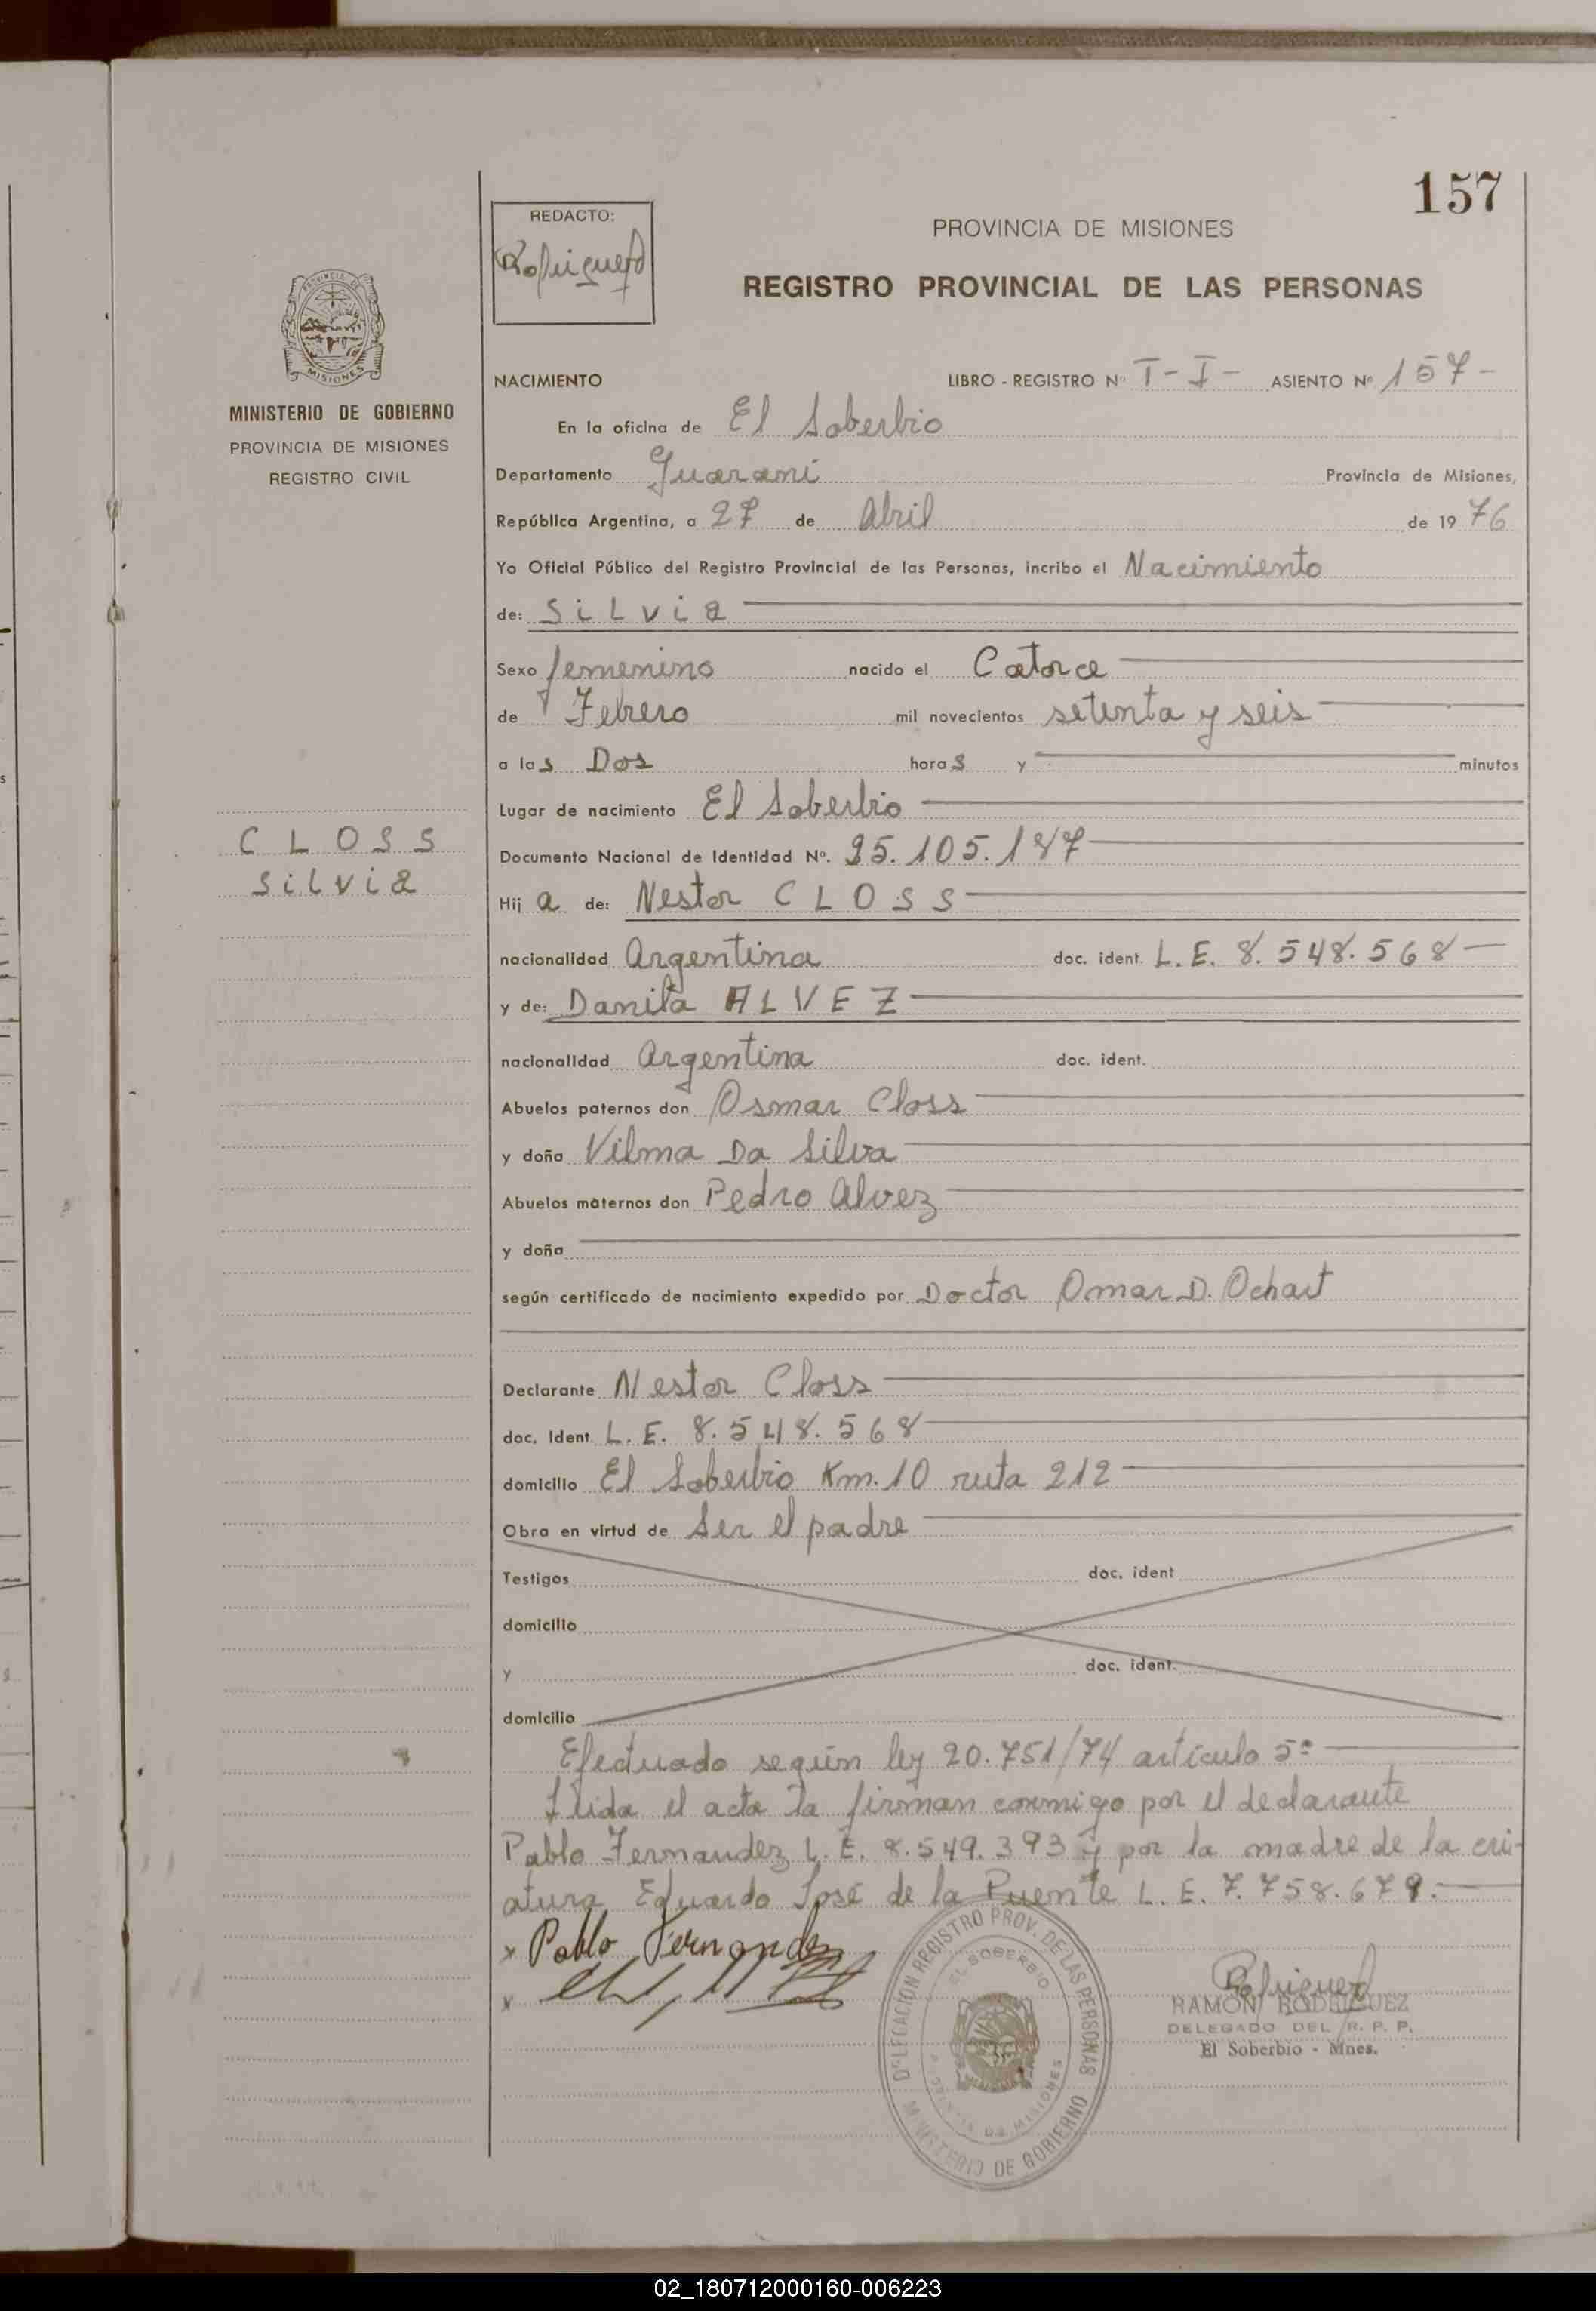 157
REDACTO:
Rodriguez
PROVINCIA DE MISIONES
REGISTRO PROVINCIAL DE LAS PERSONAS
PROVINCIA DE
MISIONES
MINISTERIO DE GOBIERNO
PROVINCIA DE MISIONES
REGISTRO CIVIL
NACIMIENTO LIBRO - REGISTRO Nº T-I- ASIENTO Nº 157-
En la oficina de El Soberbio
Departamento Guarani Provincia de Misiones,
República Argentina, a 27 de Abril de 1976
Yo Oficial Público del Registro Provincial de las Personas, incribo el Nacimiento
de: SiLvia
Sexo femenino nacido el Catorce
de Febrero mil novecientos setenta y seis
a las Dos horas y minutos
Lugar de nacimiento El Soberbio
CLOSS
SiLvia
Documento Nacional de Identidad Nº. 25.105.187
Hija de: Nestor CLOSS
nacionalidad Argentina doc. ident. L.E. 8.548.568
y de: Danila ALVEZ
nacionalidad Argentina doc. ident.
Abuelos paternos don Osmar Closs
y doña Vilma Da Silva
Abuelos maternos don Pedro Alvez
y doña
según certificado de nacimiento expedido por Doctor Omar D. Ochart
Declarante Nestor Closs
doc. Ident L.E. 8.548.568
domicilio El Soberbio Km.10 ruta 212
Obra en virtud de Ser el padre
Testigos doc. ident
domicilio
y doc. ident.
domicilio
Efectuado según ley 20.751/74 artículo 5º
Leida el acta la firman conmigo por el declarante
Pablo Fernandez L.E. 8.549.393 y por la madre de la cri-
atura Eduardo José de la Puente L.E. 7.758.679.
x Pablo Fernandez
x
DELEGACION REGISTRO PROV. DE LAS PERSONAS
EL SOBERBIO
MISIONES
MINISTERIO DE GOBIERNO
Rodriguez
RAMON RODRIGUEZ
DELEGADO DEL R. P. P.
El Soberbio - Mnes.
02_180712000160-006223